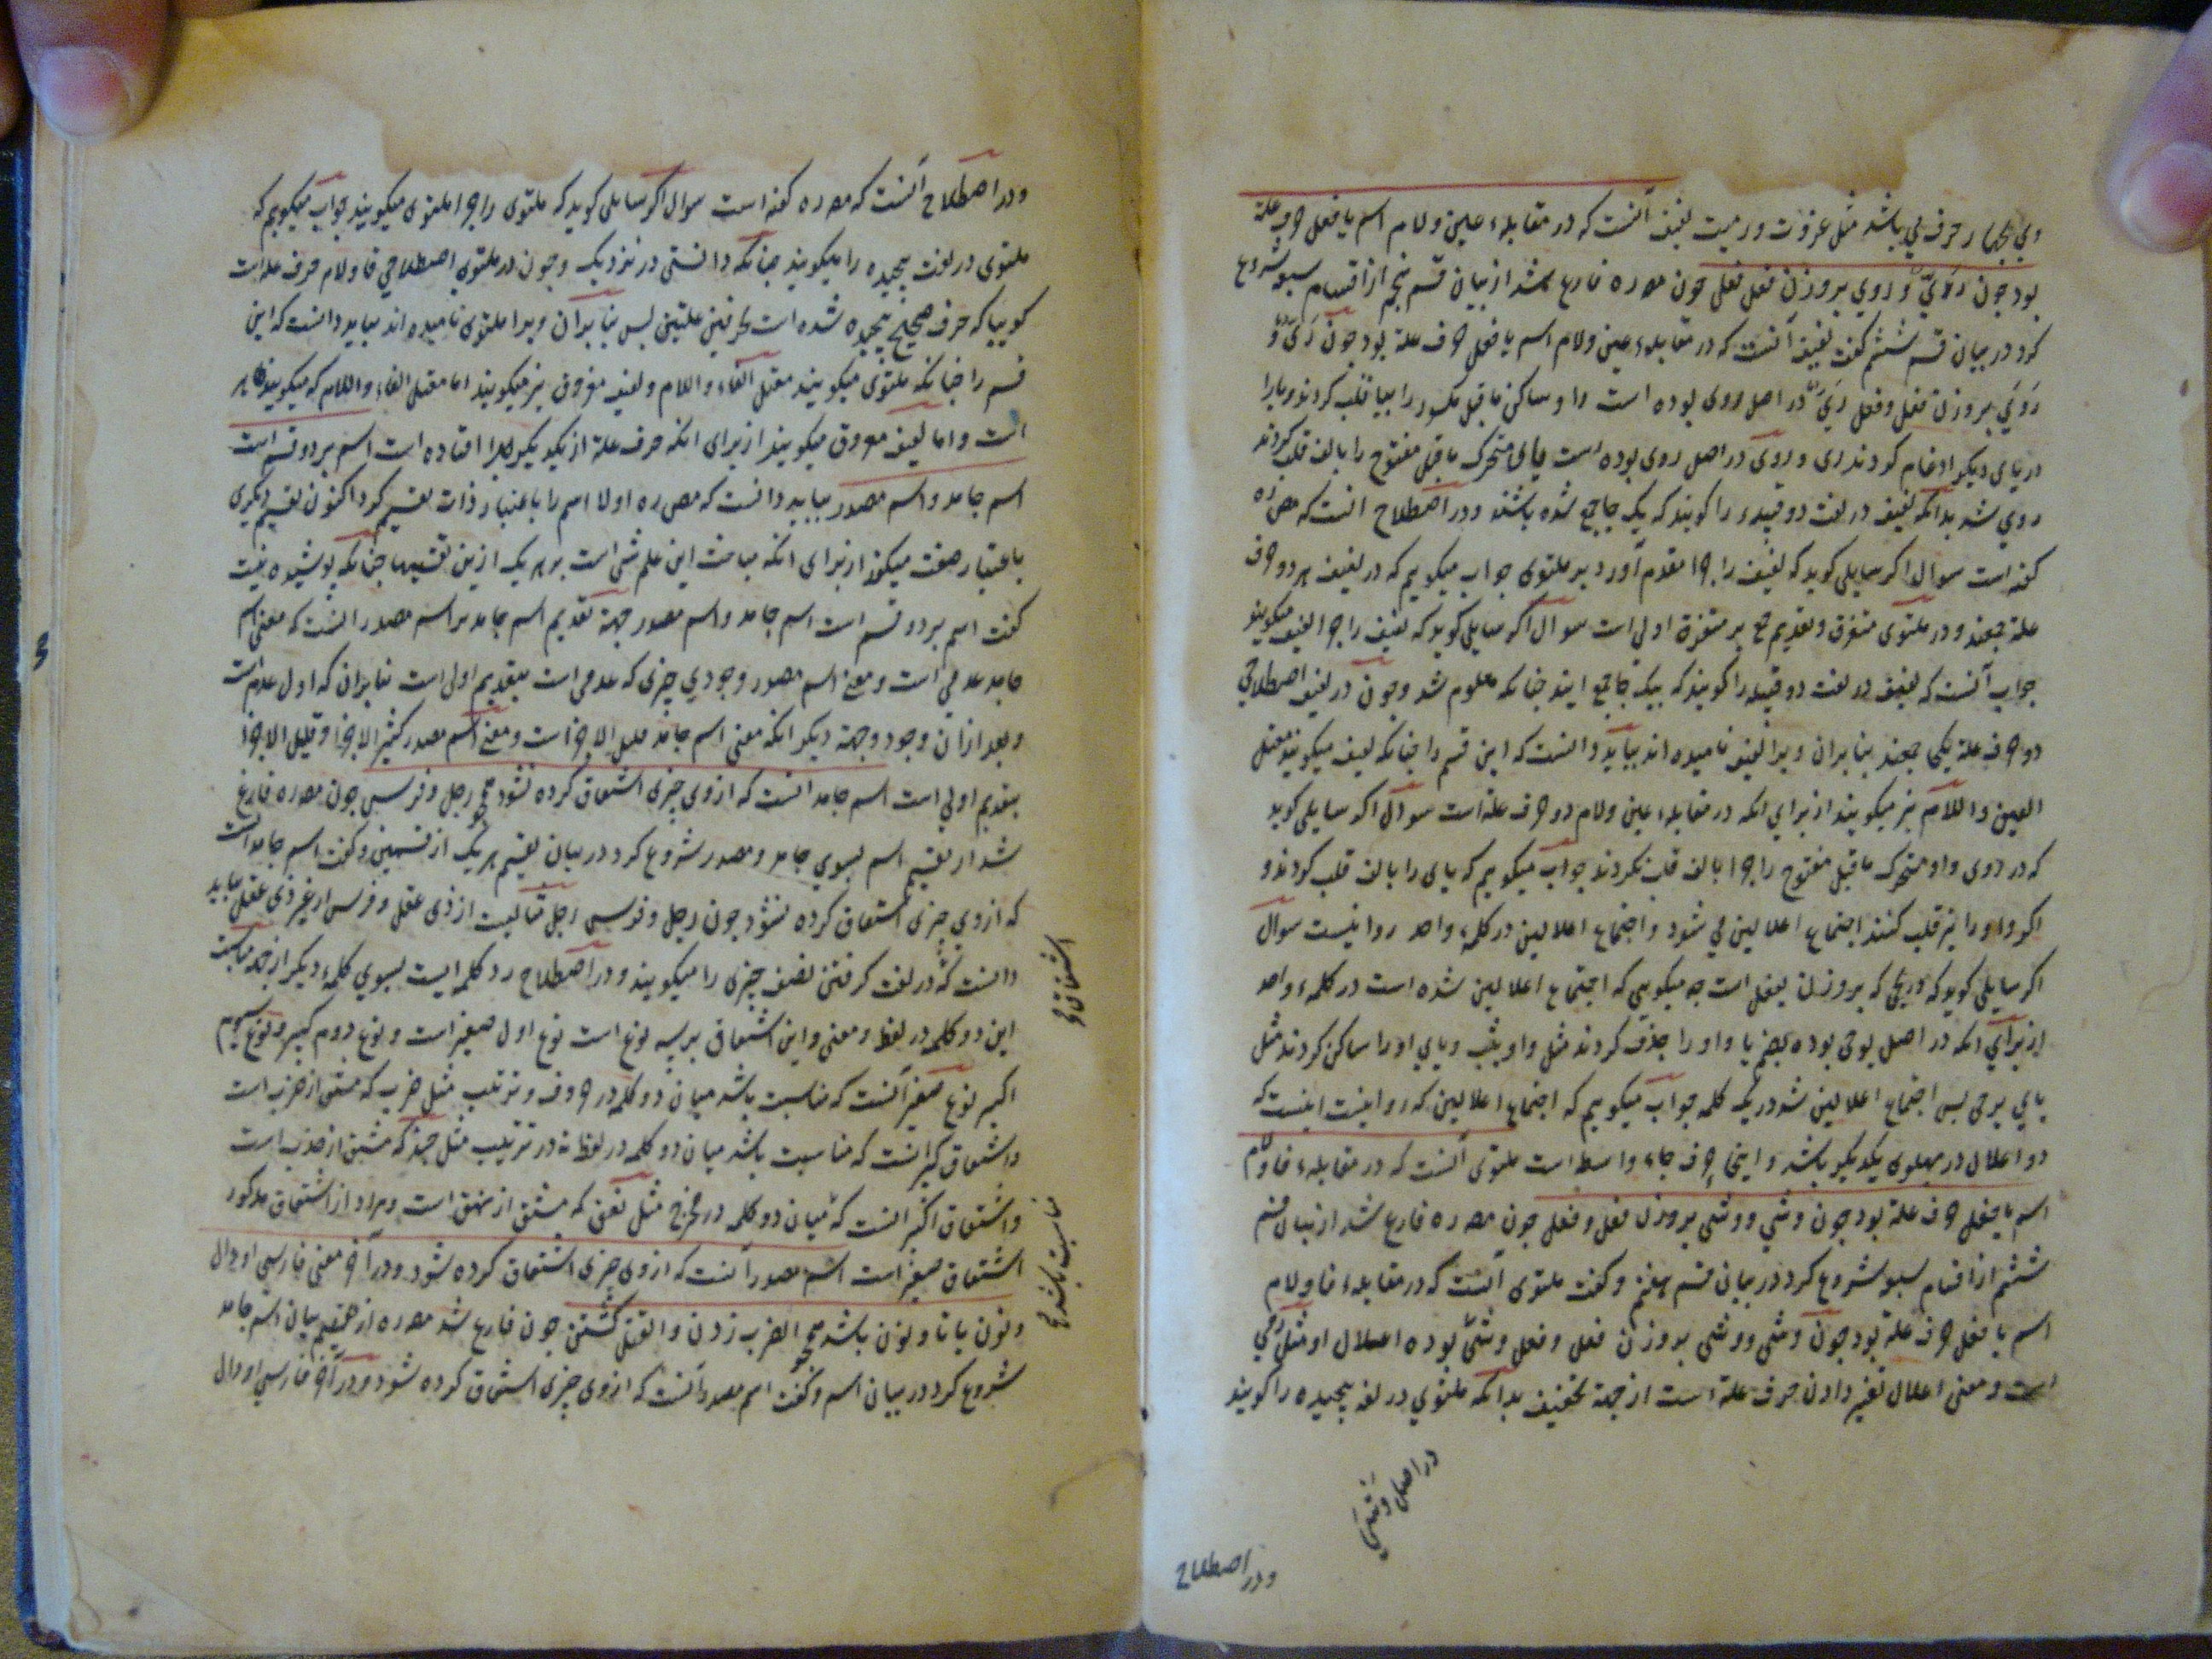 وی بچهار حرف می باشد مثل غزوت ورمیت لفیف آنست که در مقابلهء عین ولام اسم یا فعل حرف علة
بود چون رَوَيٌ وروي بروزن فعل فعل چون مصره فارع شد از بیان قسم پنجم از اقسام سبعه شروع
کرد در بیان قسم ششم گفت لفیف آنست که در مقابلهء عین ولام اسم یا فعل حرف علة بود چون رَيّ و
رَوَيَ بروزن فعل وفعل رَيّ در اصل روی بوده است واو ساکن ماقبل مکسور را بیا قلب کردند ویارا
در یای دیگر ادغام کردند ری و روی در اصل روی بوده است یای متحرک ماقبل مفتوح را بالف قلب کردند
روي شد بدانکه لفیف در لغت دو قبیلهء را گویند که یک جا جمع شده باشند ودر اصطلاح انست که مصره
گفته است سوال اگر سایلی گوید که لفیف را چرا مقدم آورد بر ملتوی جواب میگویم که در لفیف هر دو حرف
علة جمعند ودر ملتوی متفرق وتقدیم جمع بر متفرقة اولی است سوال اگر سایلی گوید که لفیف را چرا لفیف میگویند
جواب آنست که لفیف در لغت دو قبیله را گویند که بیک جا جمع ایند چنانکه معلوم شد وچون در لفیف اصطلاحی
دو حرف علة یکی جمعند بنابران ویرا لفیف نامیده اند بباید دانست که این قسم را چنانکه لفیف میگویند معتل
العین واللام نیز میگویند از برای انکه در مقابلهء عین ولام دو حرف علة است سوال اگر سایلی گوید
که در روی واو متحرک ماقبل مفتوح را چرا بالف قلب نکردند جواب میگویم که یای را بالف قلب کردند و
اگر واو را نیز قلب کنند اجتماع اعلالین می شود واجتماع اعلالین در کلمهء واحد روا نیست سوال
اگر سایلی گوید که در یحی که بروزن یفعل است چه میگویی که اجتماع اعلالین شده است در کلمهء واحد
از برای انکه در اصل یوحی بوده بضم یا واو را حذف کردند مثل واو یثب ویای او را ساکن کردند مثل
یای یرمی پس اجتماع اعلالین شد در یک کلمه جواب میگویم که اجتماع اعلالین که روا نیست اینست که
دو اعلال در پهلوی یکدیگر باشد واینجا حرف حاء واسطه است ملتوی آنست که در مقابلهء فا ولام
اسم یا فعل حرف علة بود چون وشي ووشی بروزن فعل وفعل چون مصره فارع شد از بیان قسم
ششم از اقسام سبعه شروع کرد در بیان قسم هفتم وگفت ملتوی آنست که در مقابلهء فا ولام
اسم یا فعل حرف علة بود چون وشی ووشی بروزن فعل وفعل وشی بوده اعلال او مثل رمي
است ومعنی اعلال تغیر دادن حرف علة است از جهة تخفیف بدانکه ملتوي در لغة پیچیده را گویند
در اصل وشَيَ
ودر اصطلاح
ودر اصطلاح آنست که مصره گفته است سوال اگر سایلی گوید که ملتوی را چرا ملتوی میگویند جواب میگویم که
ملتوی در لغت پیچیده را میگویند چنانکه دانستی در نزدیک وچون در ملتوی اصطلاحي فا ولام حرف علة است
گوییا که حرف صحیح پیچیده شده است بحرفین علتین پس بنابران ویرا ملتوی نامیده اند بباید دانست که این
قسم را چنانکه ملتوی میگویند معتل الفاء واللام ولفیف مفروق نیز میگویند اما معتل الفاء واللام که میگویند ظاهر
است واما لفیف مفروق میگویند از برای انکه حرف علة از یکدیگر جدا افتاده است اسم بر دو قسم است
اسم جامد واسم مصدر بباید دانست که مصره اولا اسم را باعتبار ذات تقسیم کرد اکنون تقسیم دیگری
باعتبار صفت میکند از برای انکه مباحث این علم مبنی است بر هر یک ازین تقسیمها چنانکه پوشیده نیست
گفت اسم بر دو قسم است اسم جامد واسم مصدر جهة تقدیم اسم جامد بر اسم مصدر انست که معنی اسم
جامد عدمی است ومعنی اسم مصدر وجودي چیزی که عدمی است بتقدیم اولی است بنابران که اول عدم است
وبعد ازان وجود وجهة دیگر انکه معنی اسم جامد قلیل الاجزا است ومعنی اسم مصدر کثیر الاجزا وقلیل الاجزا
بتقدیم اولی است اسم جامد انست که ازوی چیزی اشتقاق کرده نشود همچو رجل وفرس چون مصره فارغ
شد از تقسیم اسم بسوي جامد ومصدر شروع کرد در بیان تقسیم هر یک از قسمین وگفت اسم جامد انست
که ازوی چیزی اشتقاق کرده نشود چون رجل وفرس رجل مثالیست از ذی عقل وفرس از غیر ذی عقل بباید
دانست که در لغت گرفتن نصف چیزی را میگویند ودر اصطلاح رد کلمه ایست بسوي کلمهء دیگر از جهة مناسبت
این دو کلمه در لفظ ومعنی واین اشتقاق بر سه نوع است نوع اول صغیر است ونوع دوم کبیر ونوع سیوم
اکبر نوع صغیر آنست که مناسبت باشد میان دو کلمه در حروف وترتیب مثل ضرب که مشتق از ضرب است
واشتقاق کبیر انست که مناسبت باشد میان دو کلمه در لفظ نه در ترتیب مثل جبذ که مشتق از جذب است
واشتقاق اکبر انست که میان دو کلمه در مخرج مثل نعق که مشتق از نهق است ومراد از اشتقاق مذکور
اشتقاق صغیر است اسم مصدر آنست که ازوی چیزی اشتقاق کرده شود ودر آخر معنی فارسی او دال
ونون یا تا ونون باشد همچو الضرب زدن والقتل کشتن چون فارع شد مصره از تقسیم بیان اسم جامد
شروع کرد در بیان اسم وگفت اسم مصدر آنست که ازوی چیزی اشتقاق کرده شود ودر آخر فارسي او دال
اشتقاق
مناسبت باشد